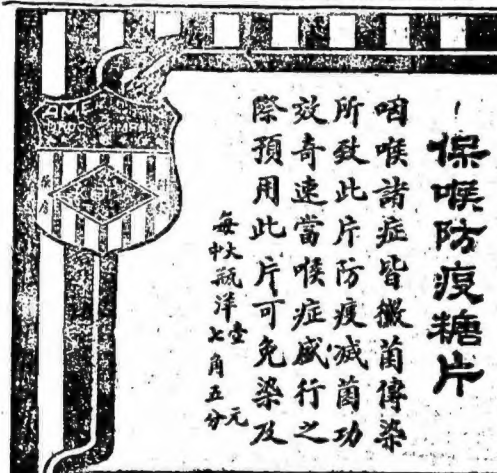 保喉防疫糖片
咽喉諸症皆微菌傳染
所致此片防疫滅菌功
效奇速當喉症盛行之
際預用此片可免染及
每大中瓶洋壹元七角五分